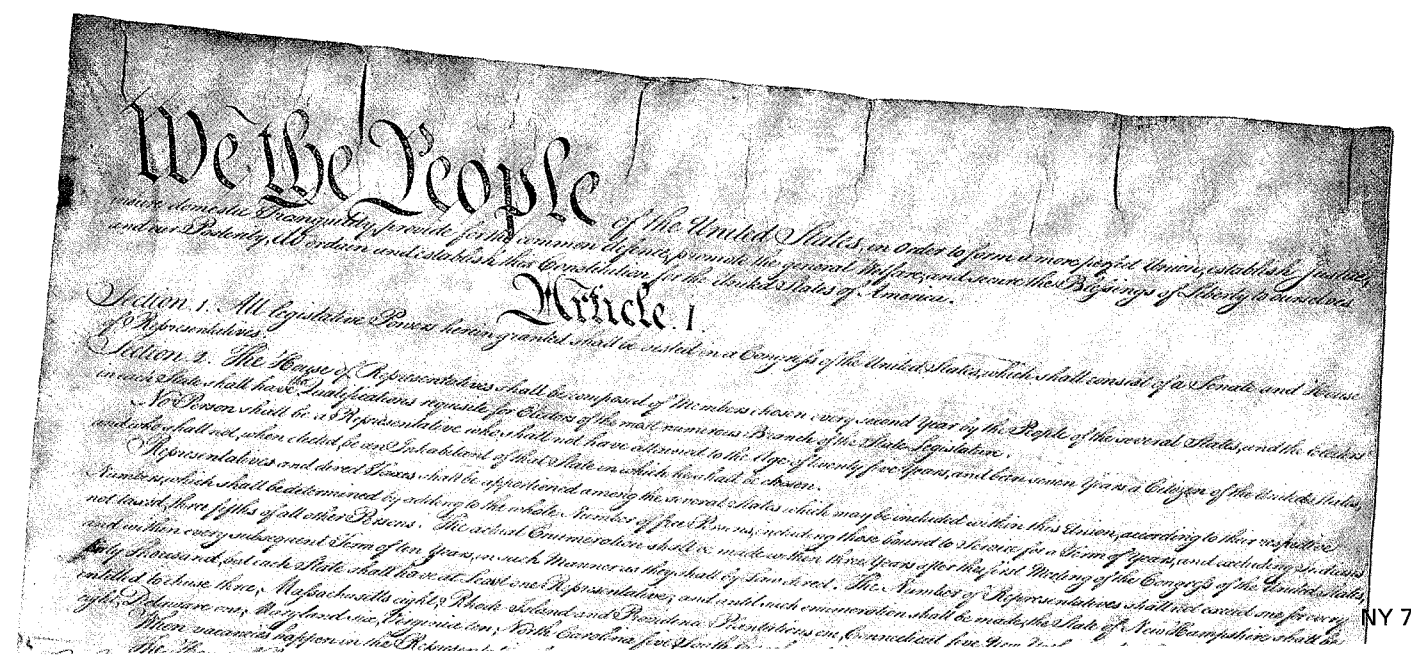 We the People of the United States, in Order to form a more perfect Union, establish Justice,
insure domestic Tranquility, provide for the common defence, promote the general Welfare, and secure the Blessings of Liberty to ourselves
and our Posterity, do ordain and establish this Constitution for the United States of America.
Article. I.
Section. 1. All legislative Powers herein granted shall be vested in a Congress of the United States, which shall consist of a Senate and House
of Representatives.
Section. 2. The House of Representatives shall be composed of Members chosen every second Year by the People of the several States, and the Electors
in each State shall have the Qualifications requisite for Electors of the most numerous Branch of the State Legislature.
No Person shall be a Representative who shall not have attained to the Age of twenty five Years, and been seven Years a Citizen of the United States,
and who shall not, when elected, be an Inhabitant of that State in which he shall be chosen.
Representatives and direct Taxes shall be apportioned among the several States which may be included within this Union, according to their respective
Numbers, which shall be determined by adding to the whole Number of free Persons, including those bound to Service for a Term of Years, and excluding Indians
not taxed, three fifths of all other Persons. The actual Enumeration shall be made within three Years after the first Meeting of the Congress of the United States,
and within every subsequent Term of ten Years, in such Manner as they shall by Law direct. The Number of Representatives shall not exceed one for every
thirty Thousand, but each State shall have at Least one Representative; and until such enumeration shall be made, the State of New Hampshire shall be
entitled to chuse three, Massachusetts eight, Rhode Island and Providence Plantations one, Connecticut five, New
eight, Delaware one, Maryland six, Virginia ten, North Carolina five, South
When vacancies happen in the Representation
The
NY 7